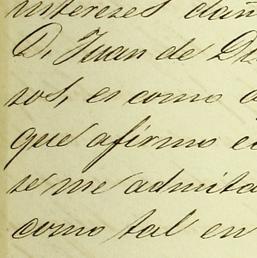 intereses dañ
D. Juan de Di
sos, es como a
que afirmo e
se me admita
como tal en